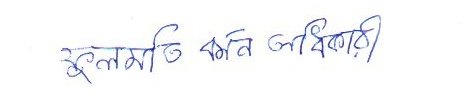 ফুলমতি বর্মন অধিকারী